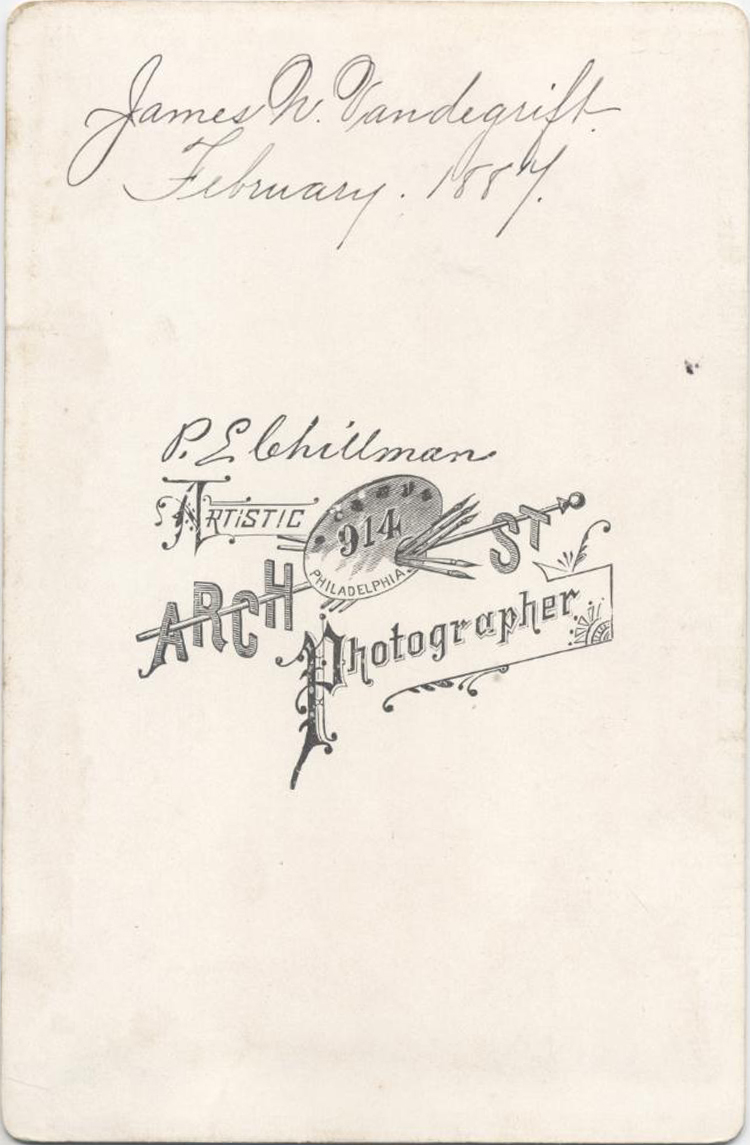 James W. Vandegrift.
February. 1887.
P. E. Chillman
ARTISTIC
914
PHILADELPHIA.
ARCH ST
Photographer